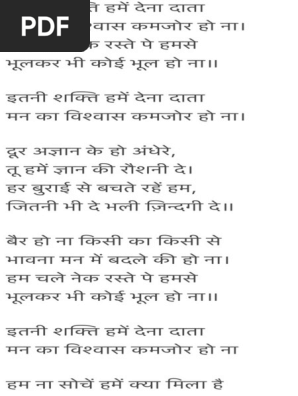 PDF
ति हमें देना दाता
श्वास कमजोर हो ना।
रस्ते पे हमसे
भूलकर भी कोई भूल हो ना।।
इतनी शक्ति हमें देना दाता
मन का विश्वास कमजोर हो ना।
दूर अज्ञान के हो अंधेरे,
तू हमें ज्ञान की रौशनी दे।
हर बुराई से बचते रहें हम,
जितनी भी दे भली ज़िन्दगी दे।।
बैर हो ना किसी का किसी से
भावना मन में बदले की हो ना।
हम चले नेक रस्ते पे हमसे
भूलकर भी कोई भूल हो ना।।
इतनी शक्ति हमें देना दाता
मन का विश्वास कमजोर हो ना
हम ना सोचें हमें क्या मिला है